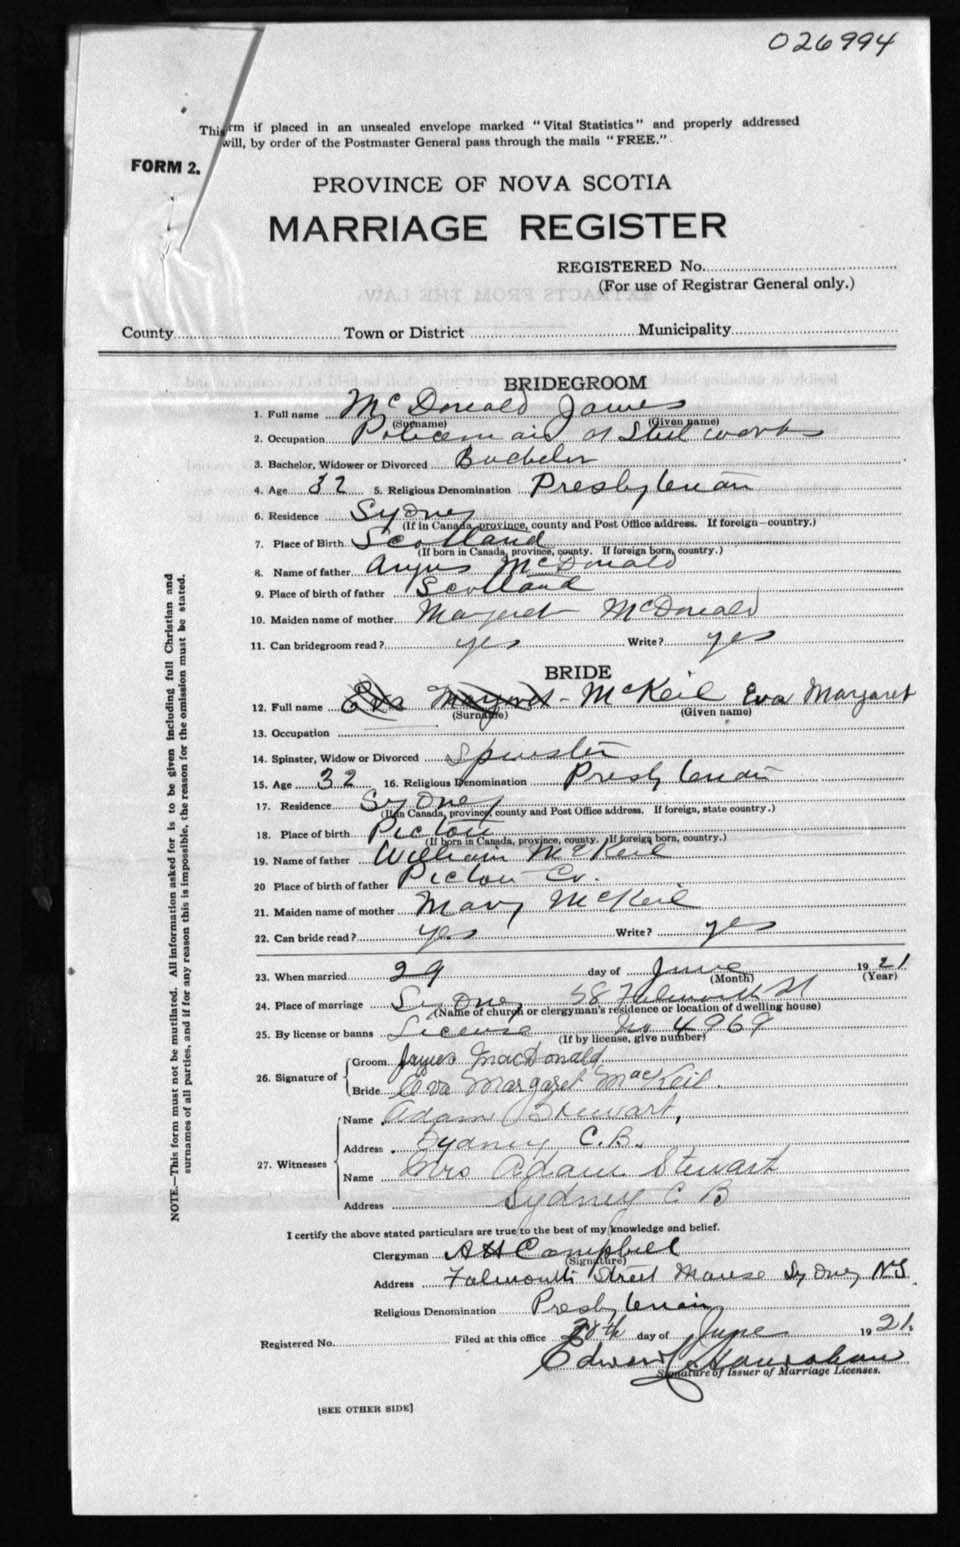 026994
This form if placed in an unsealed envelope marked "Vital Statistics" and properly addressed
will, by order of the Postmaster General pass through the mails "FREE."
FORM 2.
PROVINCE OF NOVA SCOTIA
MARRIAGE REGISTER
REGISTERED No.
(For use of Registrar General only.)
County Town or District Municipality
BRIDEGROOM
1. Full name McDonald James
(Surname) (Given name)
2. Occupation Policeman at Steel works
3. Bachelor, Widower or Divorced Bachelor
4. Age 32 5. Religious Denomination Presbyterian
6. Residence Sydney
(If in Canada, province, county and Post Office address. If foreign—country.)
7. Place of Birth Scotland
(If born in Canada, province, county. If foreign born, country.)
8. Name of father Angus McDonald
9. Place of birth of father Scotland
10. Maiden name of mother Margaret McDonald
11. Can bridegroom read? yes Write? yes
BRIDE
12. Full name Eva Margret - McKeil Eva Margaret
(Surname) (Given name)
13. Occupation
14. Spinster, Widow or Divorced Spinster
15. Age 32 16. Religious Denomination Presbyterian
17. Residence Sydney
(If in Canada, province, county and Post Office address. If foreign, state country.)
18. Place of birth Pictou
(If born in Canada, province, county. If foreign born, country.)
19. Name of father William McKeil
20 Place of birth of father Pictou Co.
21. Maiden name of mother Mary McKeil
22. Can bride read? yes Write? yes
23. When married 29 day of June 1921
(Month) (Year)
24. Place of marriage Sydney 58 Falmouth St
(Name of church or clergyman's residence or location of dwelling house)
25. By license or banns License No 4969
(If by license, give number)
26. Signature of
Groom James MacDonald
Bride Eva Margaret MacKeil.
27. Witnesses
Name Adam Stewart,
Address Sydney C.B.
Name Mrs Adam Stewart
Address Sydney C B
I certify the above stated particulars are true to the best of my knowledge and belief.
Clergyman A H Campbell
(Signature)
Address Falmouth Street Manse Sydney NS
Religious Denomination Presbyterian
Registered No. Filed at this office 30th day of June 1921.
Edward Hanrahan
Signature of Issuer of Marriage Licenses.
[SEE OTHER SIDE]
NOTE.—This form must not be mutilated. All information asked for is to be given including full Christian and
surnames of all parties, and if for any reason this is impossible, the reason for the omission must be stated.